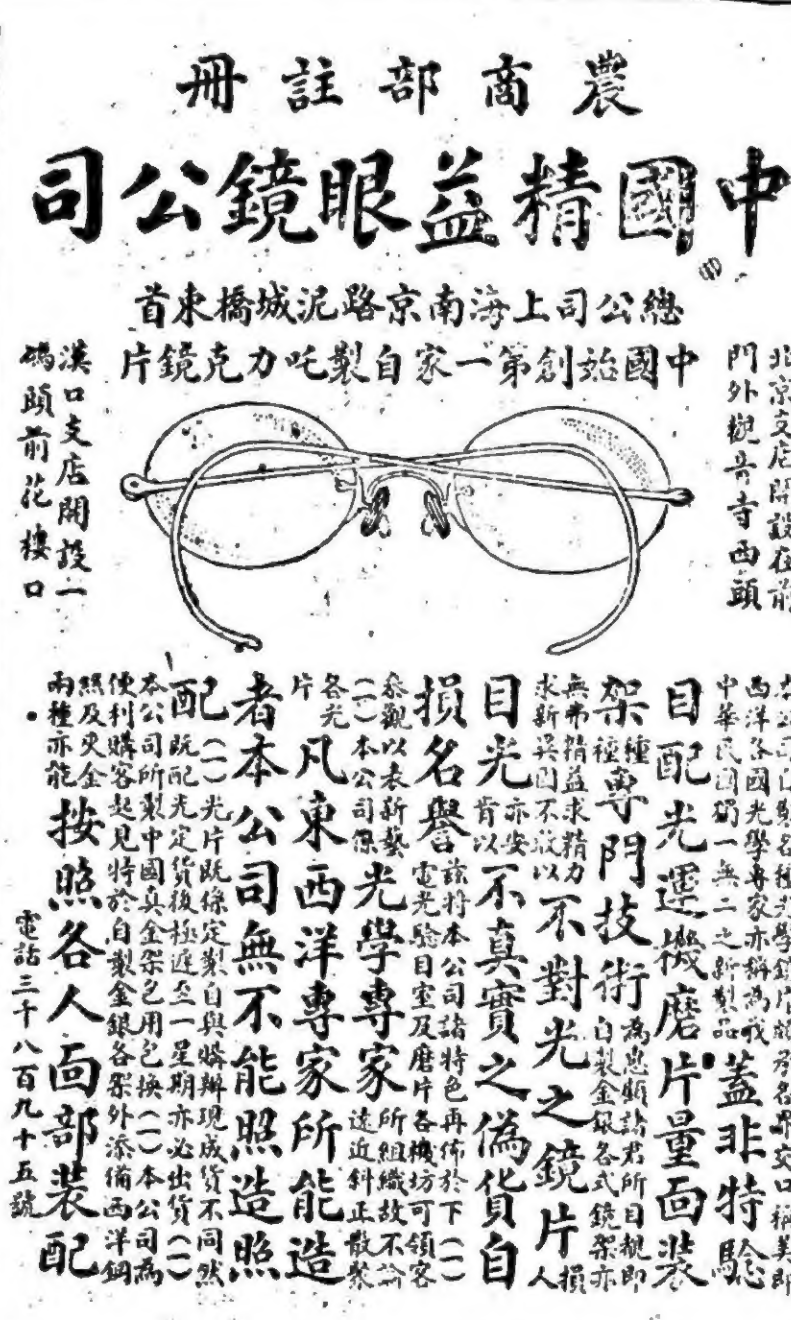 農商部註冊
中國精益眼鏡公司
總公司上海南京路泥城橋東首
中國始創第一家自製吒力克鏡片
北京支店開設在前
門外觀音寺西頭
漢口支店開設一
碼頭前花樓口
西洋各國光學專家亦稱為我
中華民國獨一無二之新製品
蓋非特驗
目配光運機磨片量面裝
架種種專門技術
為惠顧諸君所目覩即
自製金銀各式鏡架亦
無弗精益求精力
求新異因不敢以
不對光之鏡片
損人
目光
亦安
肯以
不真實之偽貨自
損名譽
茲將本公司諸特色再佈於下(一)
電光驗目室及磨片各機坊可領客
參觀以表新藝
(一)本公司係
光學專家
所組織故不論
遠近斜正散聚
各光
片
凡東西洋專家所能造
者本公司無不能照造照
配
(一)光片既係定製自與購辦現成貨不同然
既配光定貨後極遲至一星期亦必出貨(一)
本公司所製中國真金架包用包換(一)本公司為
便利購客起見特於自製金銀各架外添備西洋鋼
照及夾金
兩種亦能
按照各人面部裝配
電話三千八百九十五號